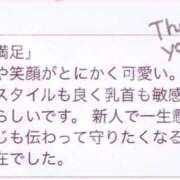 Tha
yo
満足」
や笑顔がとにかく可愛い。
スタイルも良く乳首も敏感
らしいです。 新人で一生懸
じも伝わって守りたくなる
在でした。